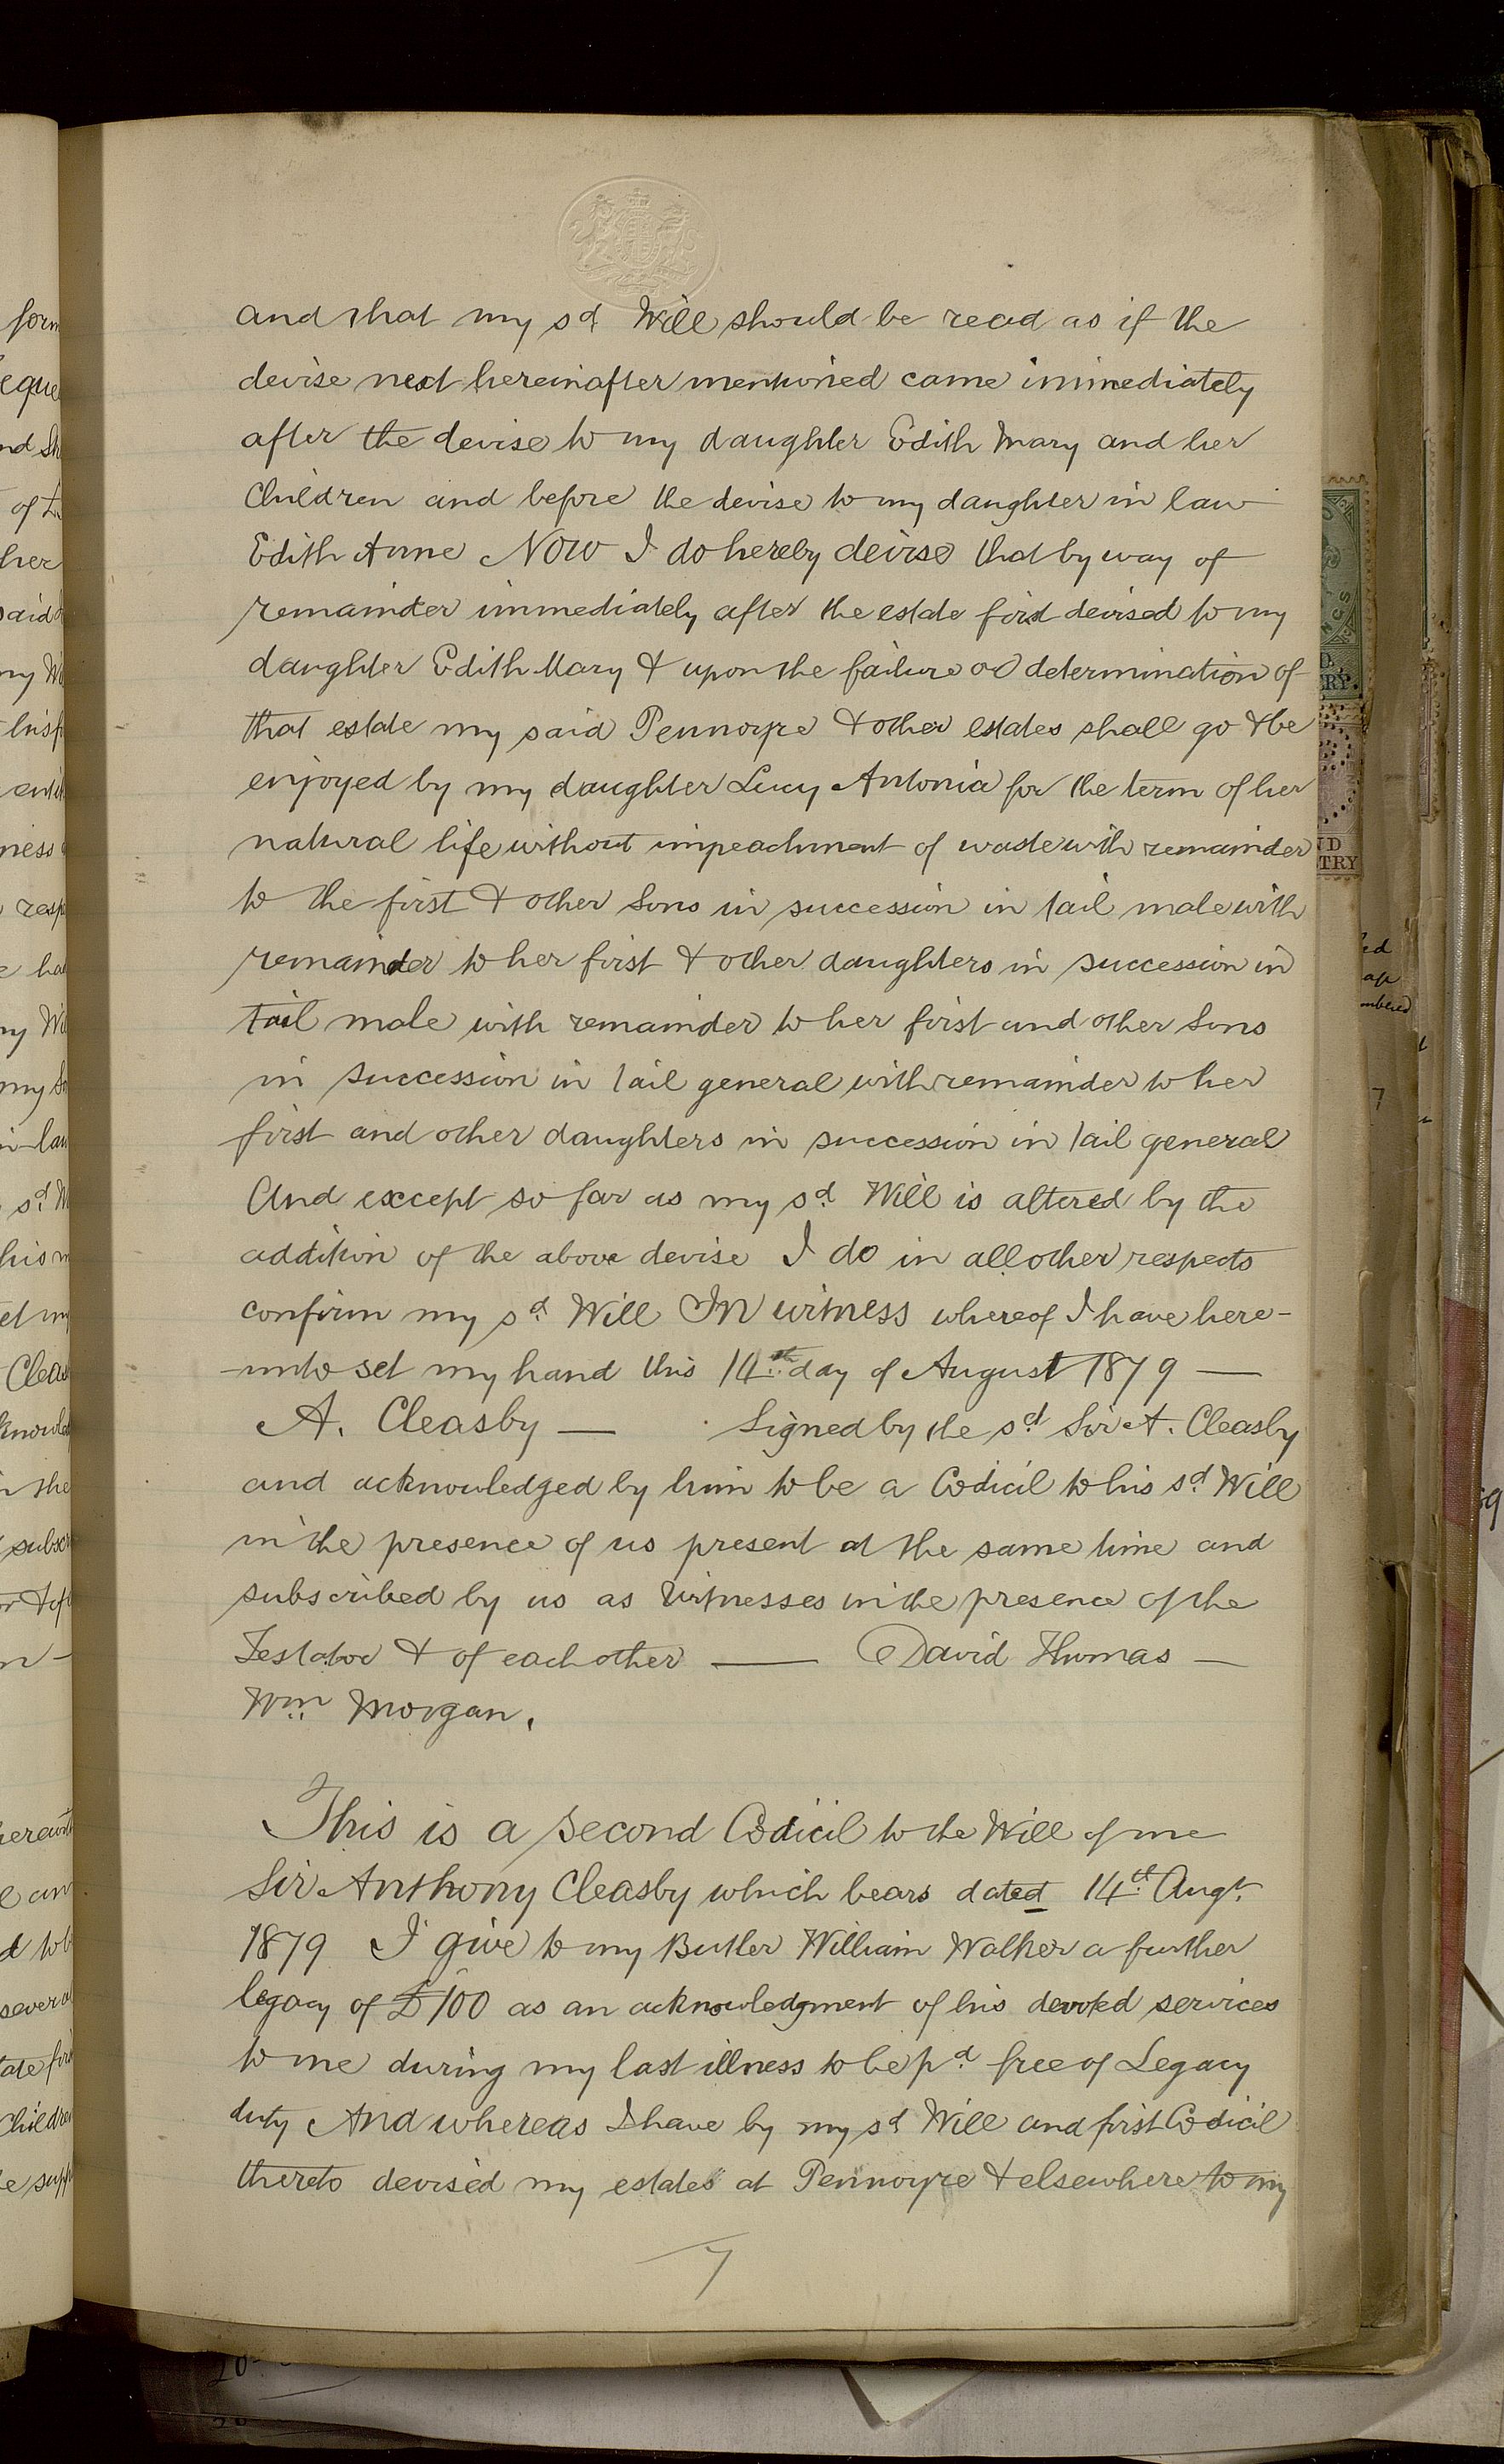 and that my sd Will should be read as if the
devise next hereinafter mentioned came immediately
after the devise to my daughter Edith Mary and her
Children and before the devise to my daughter in law
Edith Anne Now I do hereby devise that by way of
remainder immediately after the estate first devised to my
daughter Edith Mary & upon the failure or determination of
that estate my said Pennoyre & other estates shall go & be
enjoyed by my daughter Lucy Antonia for the term of her
natural life without impeachment of waste with remainder
to the first & other Sons in succession in tail male with
remainder to her first & other daughters in succession in
tail male with remainder to her first and other Sons
in succession in tail general with remainder to her
first and other daughters in succession in tail general
And except so far as my sd. Will is altered by the
addition of the above devise I do in all other respects
confirm my sd. Will In witness whereof I have here-
-unto set my hand this 14th day of August 1879 —
A. Cleasby — Signed by the sd Sir A. Cleasby
and acknowledged by him to be a Codicil to his sd. Will
in the presence of us present at the same time and
subscribed by us as Witnesses in the presence of the
Testator & of each other — David Thomas —
Wm. Morgan.
This is a second Codicil to the Will of me
Sir Anthony Cleasby which bears dated 14th Augt.
1879 I give to my Butler William Walker a further
legacy of £100 as an acknowledgment of his devoted services
to me during my last illness to be pd free of Legacy
duty And whereas I have by my sd Will and first Codicil
thereto devised my estates at Pennoyre & elsewhere to my
7